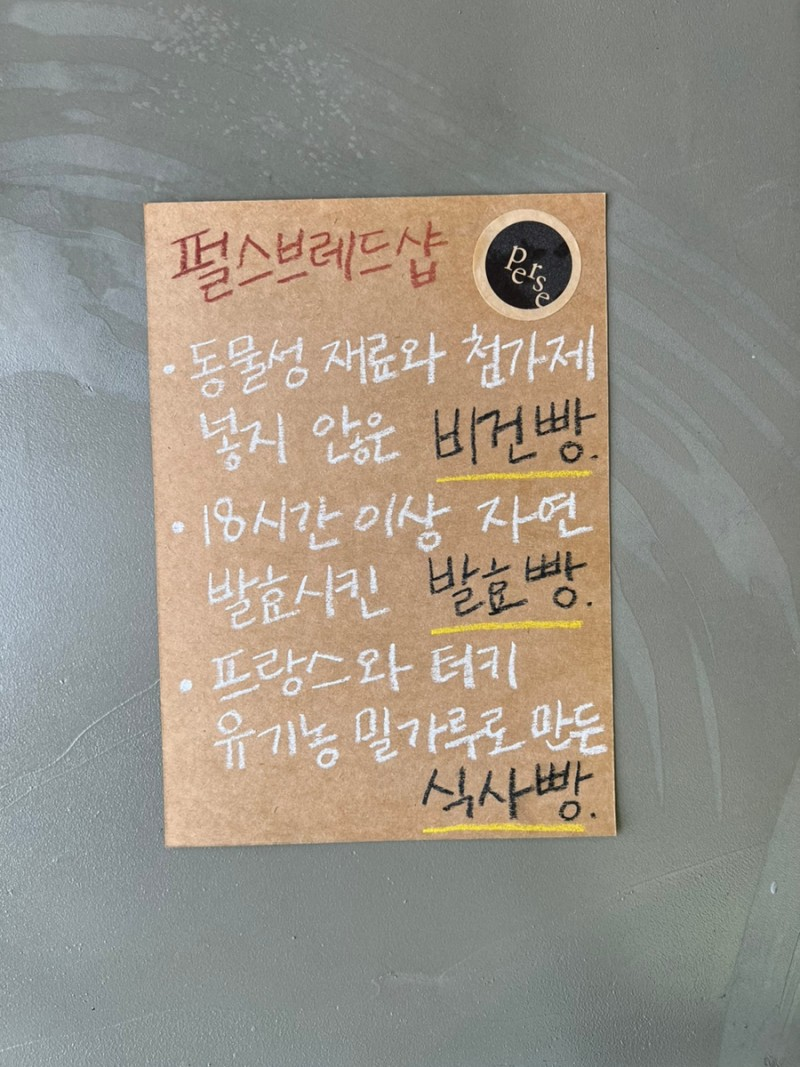 펄스브레드샵
perse
• 동물성 재료와 첨가제
넣지 않은 비건빵.
• 18시간 이상 자연
발효시킨 발효빵.
• 프랑스와 터키
유기농 밀가루로 만든
식사빵.